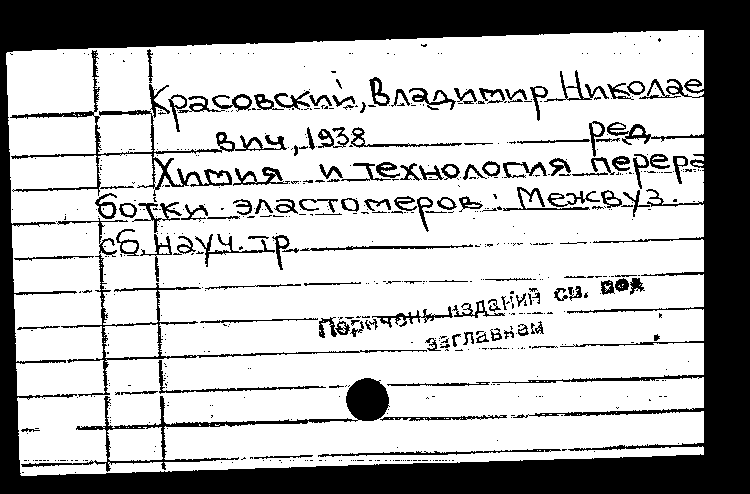 Красовский, Владимир Николае
вич, 1938 ред.
Химия и технология перера
ботки эластомеров: Межвуз.
сб. науч. тр.
Перечень изданий см. под
заглавием